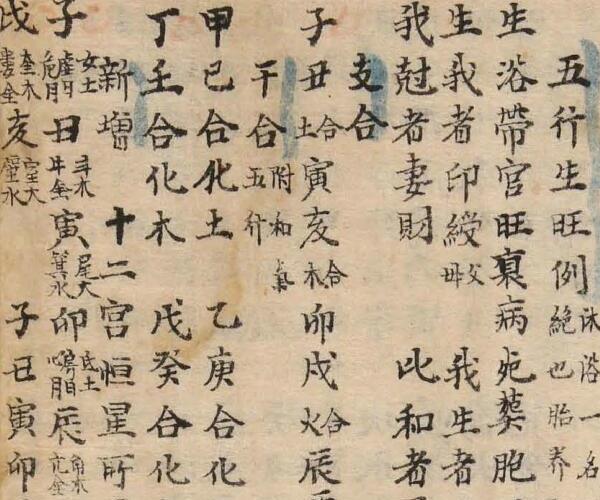 五行生旺例沐浴一名絶也胎养
生浴帶官旺衰病死葬胞
生我者印綬父母 我生者
我尅者妻財 比和者
支合
子丑合土寅亥合木卯戌合火辰
干合附和氣五行
甲已合化土 乙庚合化
丁壬合化木 戊癸合化
新增 十二宮恒星所
子女土虛日危月丑斗木牛金寅尾火箕水卯氐土房日心月辰角木亢金
戌奎木婁金亥室火壁水 子丑寅卯